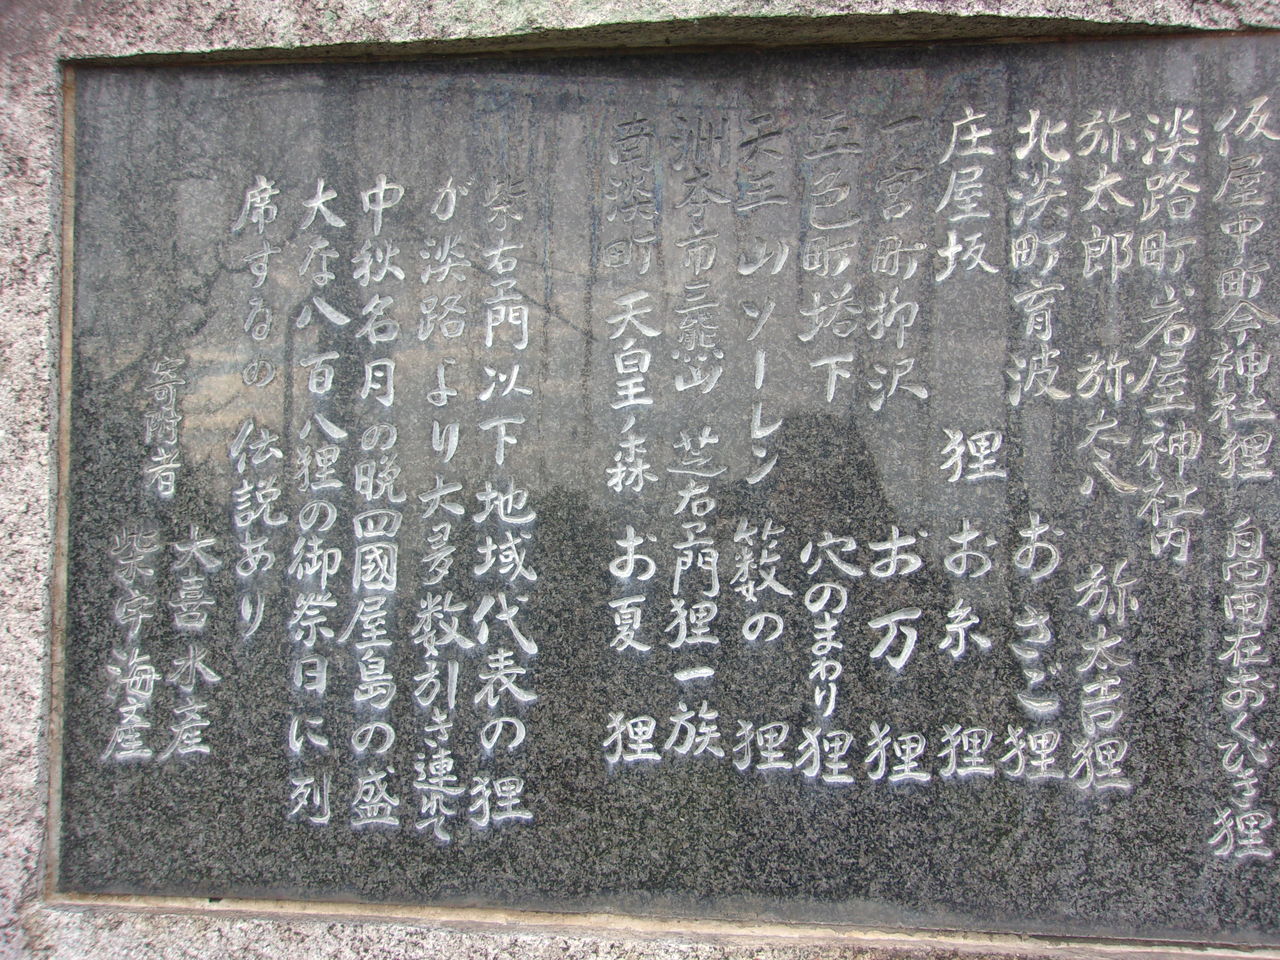 仮屋甲町今神社狸 白田在おくびき狸
淡路町岩屋神社内
弥太郎 弥太八 弥太吉狸
北淡町育波 おさご狸
庄屋坂 狸 お糸狸
一宮町柳沢 お万狸
五色町塔下 穴のまわり狸
天王山ソーレン 籔の狸
洲本市三熊山 芝右ヱ門狸一族
南淡町天皇ノ森 お夏狸
柴右ヱ門以下地域代表の狸
が淡路より大多数引き連れて
中秋名月の晩四國屋島の盛
大な八百八狸の御祭日に列
席するの伝説あり
寄附者 大喜水産
柴宇海産